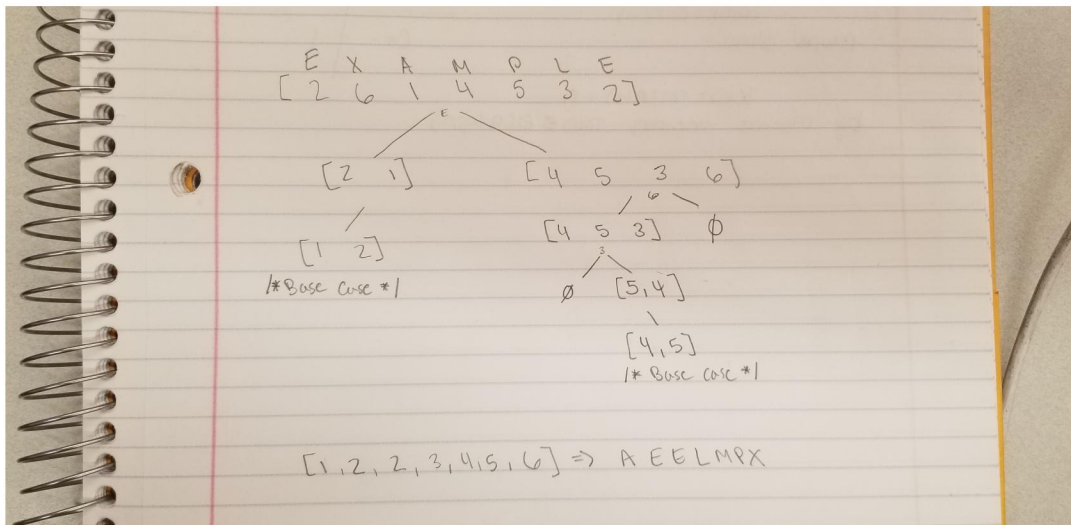 E X A M P L E
[ 2 6 1 4 5 3 2 ]
E
[ 2 1 ] [ 4 5 3 6 ]
6
[ 1 2 ] [ 4 5 3 ] ∅
3
/* Base case */ ∅ [5,4]
[4,5]
/* Base case */
[1,2,2,3,4,5,6] ⇒ A E E L M P X